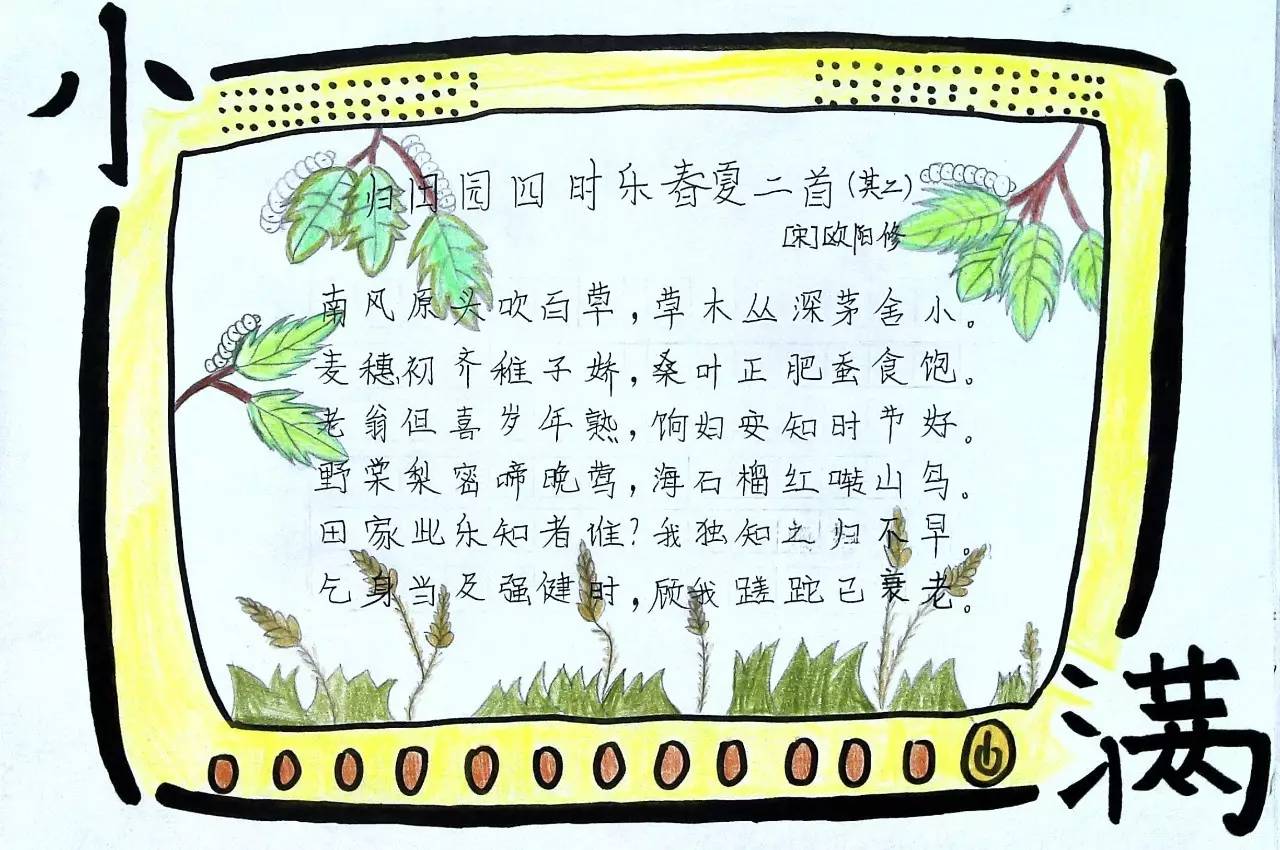 小
归田园四时乐春夏二首(其二)
[宋]欧阳修
南风原头吹百草,草木丛深茅舍小。
麦穗初齐稚子娇,桑叶正肥蚕食饱。
老翁但喜岁年熟,饷妇安知时节好。
野棠梨密啼晚莺,海石榴红啭山鸟。
田家此乐知者谁?我独知之归不早。
乞身当及强健时,顾我蹉跎已衰老。
满